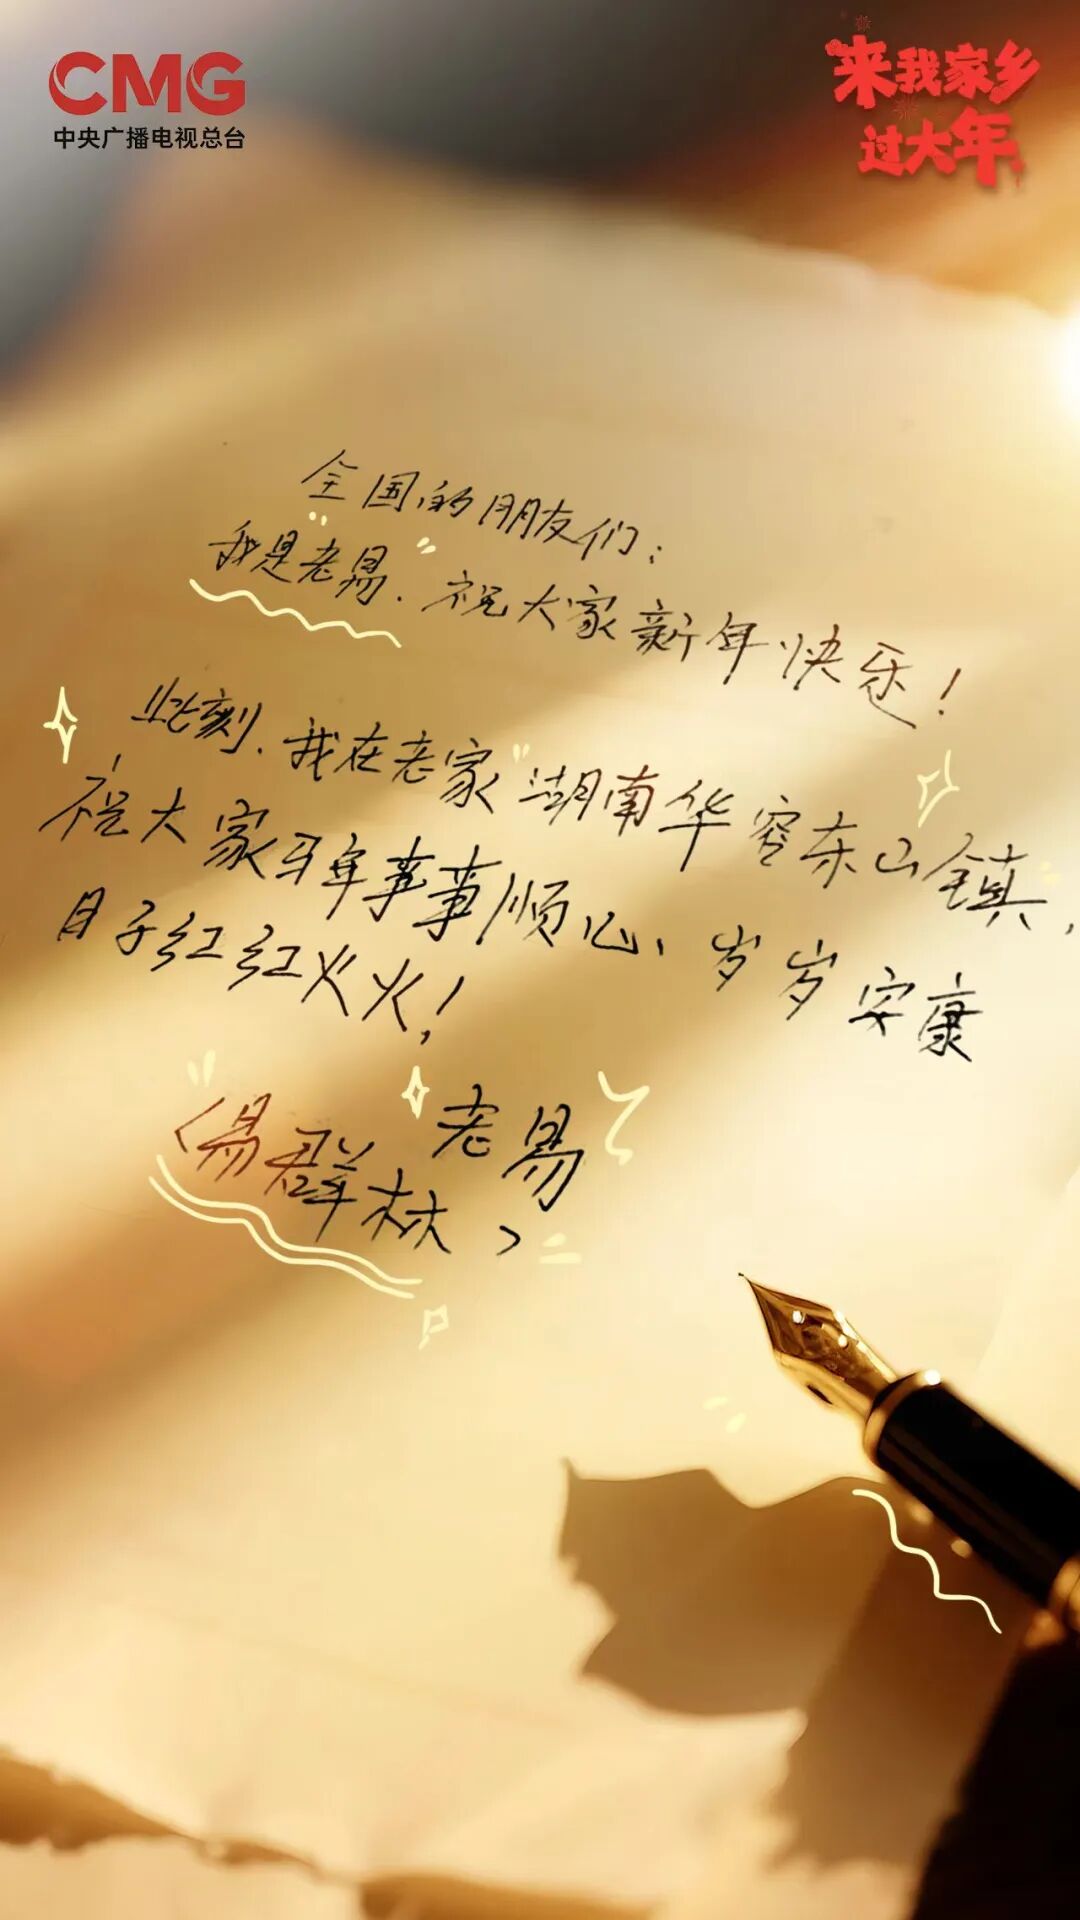 CMG
中央广播电视总台
来我家乡
过大年
全国的朋友们:
我是"老易",祝大家新年快乐!
此刻,我在老家"湖南华容东山镇,
祝大家马年事事顺心、岁岁安康
日子红红火火!
老易
(易群林)